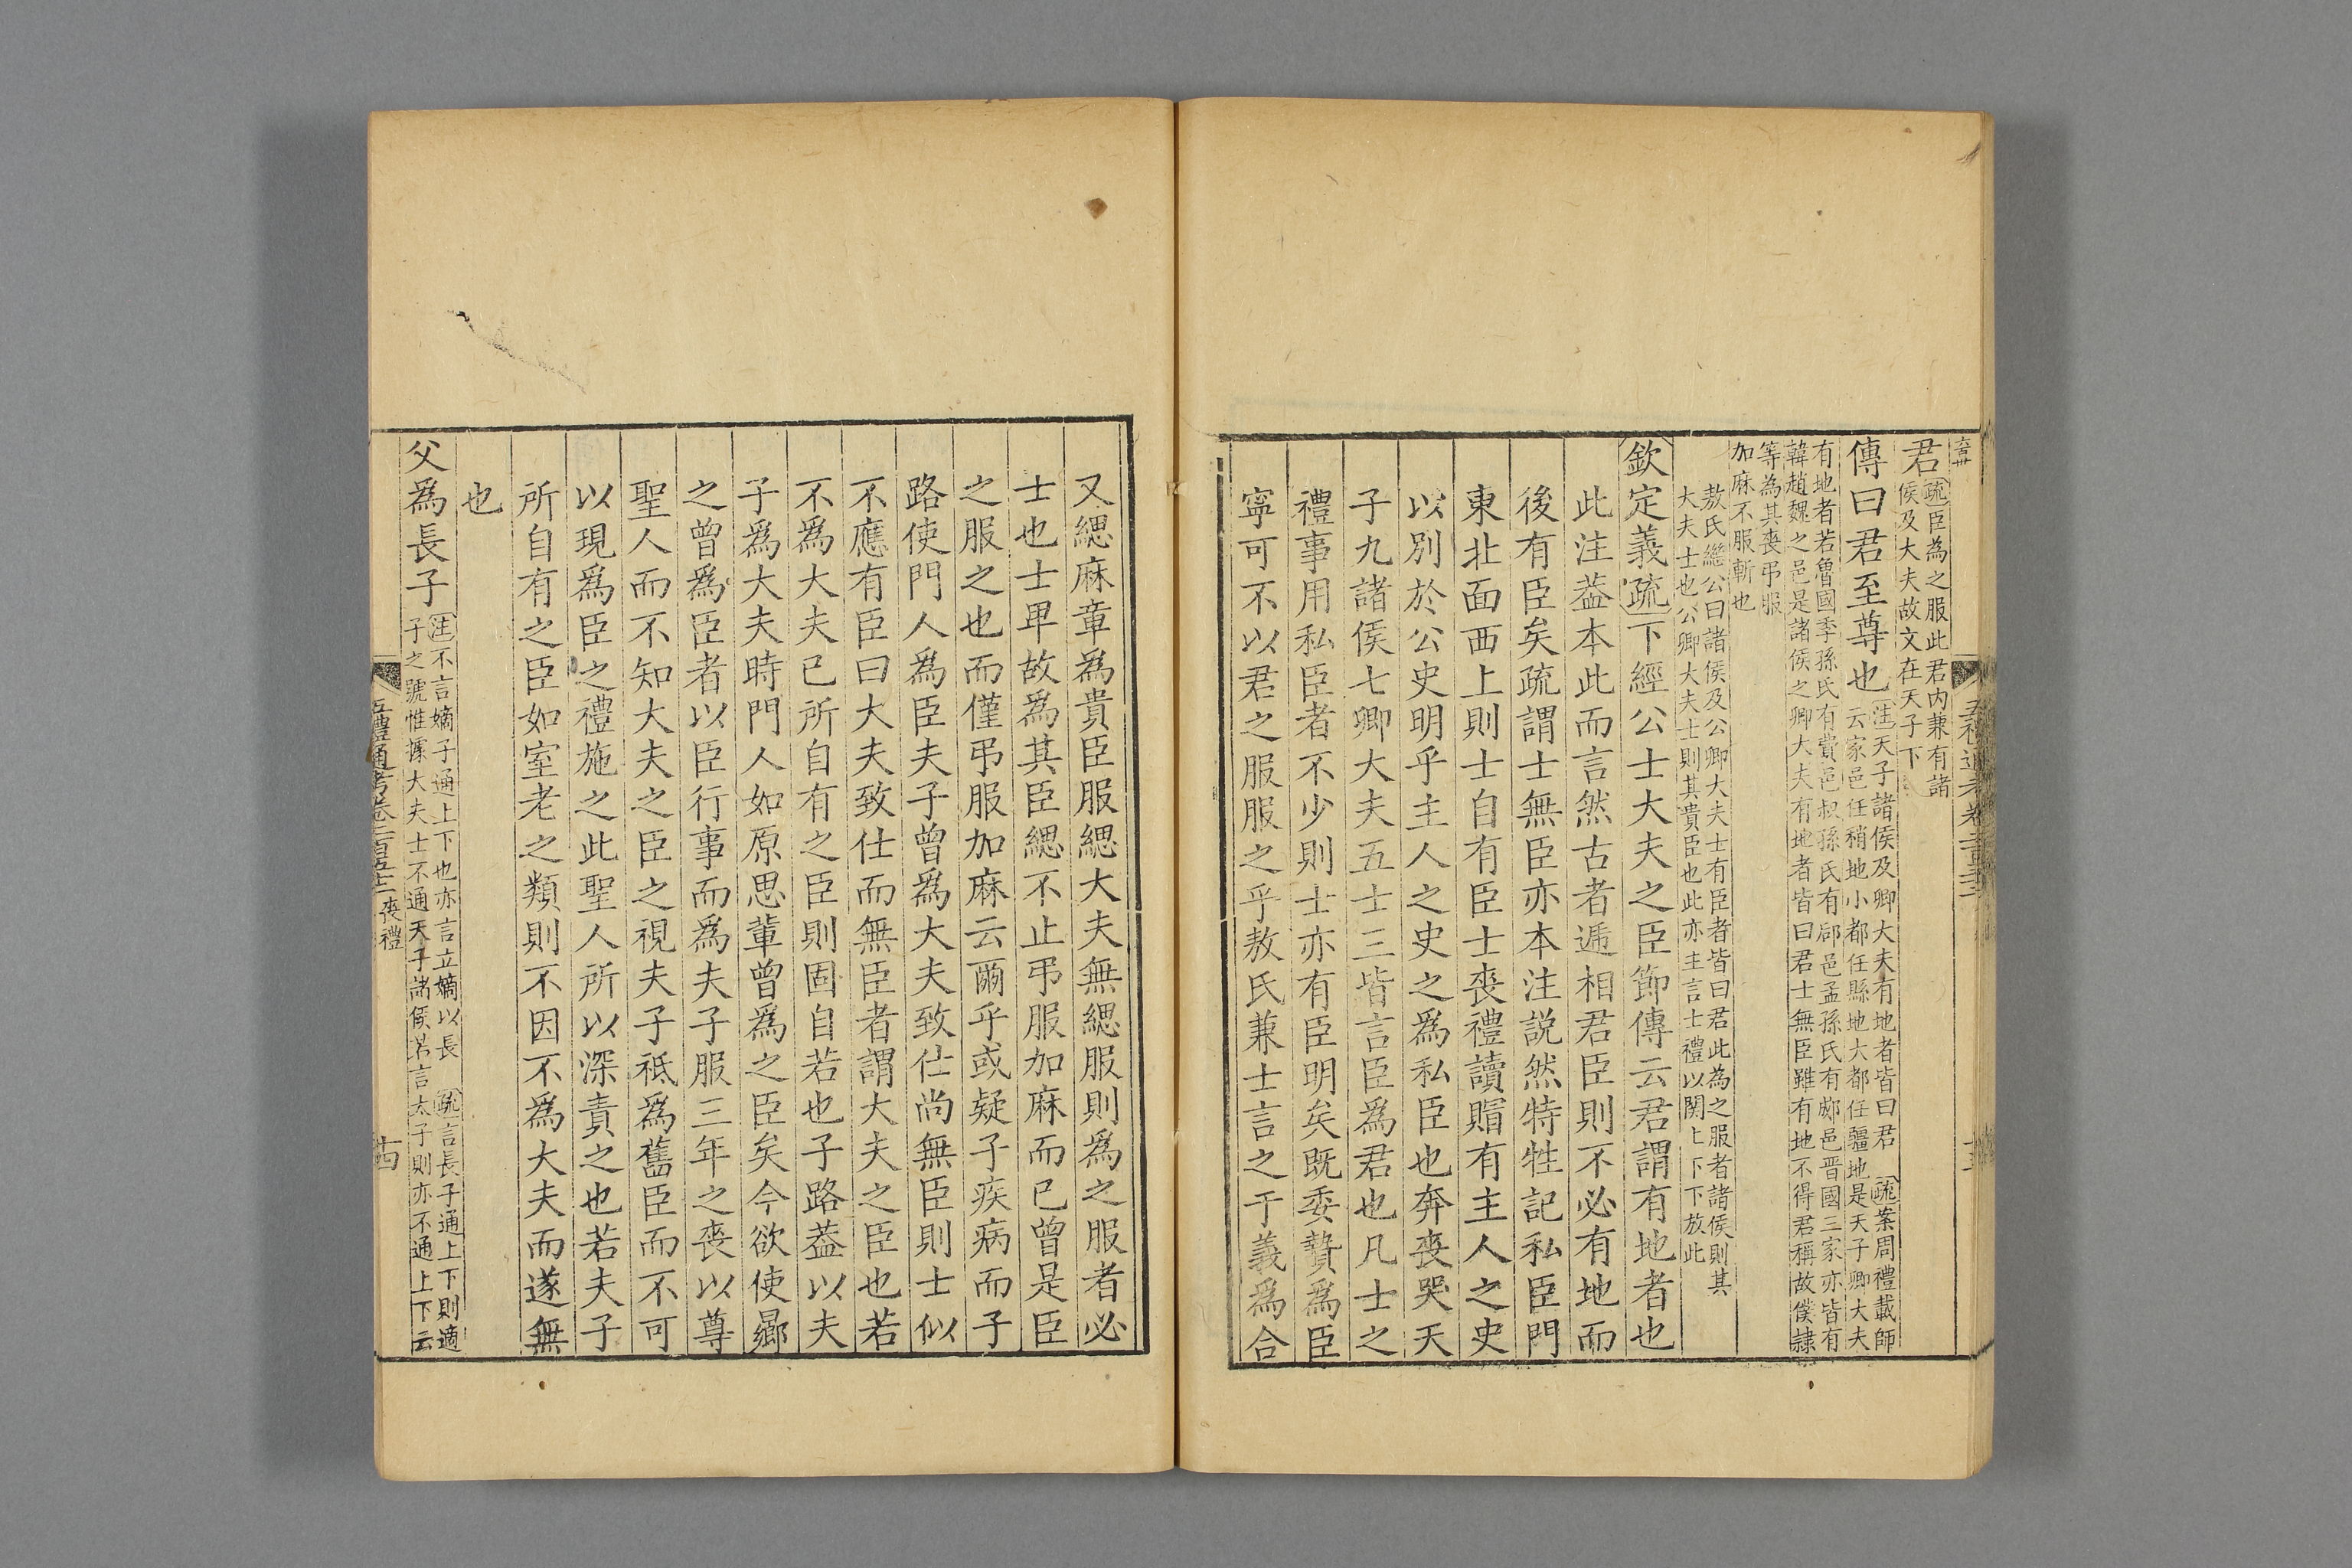 君疏臣為之服此君內兼有諸
侯及大夫故文在天子下
傳曰君至尊也注天子諸侯及卿大夫有地者皆曰君 疏案周禮載師
云家邑任稍地小都任縣地大都任疆地是天子卿大夫
有地者若魯國季孫氏有費邑叔孫氏有郈邑孟孫氏有郕邑晋國三家亦皆有
韓趙魏之邑是諸侯之卿大夫有地者皆曰君士無臣雖有地不得君稱故僕隸
等為其喪弔服
加麻不服斬也
敖氏繼公曰諸侯及公卿大夫士有臣者皆曰君此為之服者諸侯則其
大夫士也公卿大夫士則其貴臣也此亦主言士禮以関上下下放此
欽定義疏下經公士大夫之臣節傳云君謂有地者也
此注葢本此而言然古者遞相君臣則不必有地而
後有臣矣疏謂士無臣亦本注説然特牲記私臣門
東北面西上則士自有臣士喪禮讀賵有主人之史
以別於公史明乎主人之史之爲私臣也奔喪哭天
子九諸侯七卿大夫五士三皆言臣爲君也凡士之
禮事用私臣者不少則士亦有臣明矣既委贄爲臣
寜可不以君之服服之乎敖氏兼士言之于義爲合
又緦麻章爲貴臣服緦大夫無緦服則爲之服者必
士也士卑故爲其臣緦不止弔服加麻而已曾是臣
之服之也而僅弔服加麻云爾乎或疑子疾病而子
路使門人爲臣夫子曾爲大夫致仕尚無臣則士似
不應有臣曰大夫致仕而無臣者謂大夫之臣也若
不爲大夫已所自有之臣則固自若也子路葢以夫
子爲大夫時門人如原思輩曾爲之臣矣今欲使曏
之曾爲臣者以臣行事而爲夫子服三年之喪以尊
聖人而不知大夫之臣之視夫子祗爲舊臣而不可
以現爲臣之禮施之此聖人所以深責之也若夫子
所自有之臣如室老之類則不因不爲大夫而遂無
也
父爲長子注不言嫡子通上下也亦言立嫡以長 疏言長子通上下則適
子之號惟據大夫士不通天子諸侯若言太子則亦不通上下云
五禮通考卷二百五十二 喪禮
十四